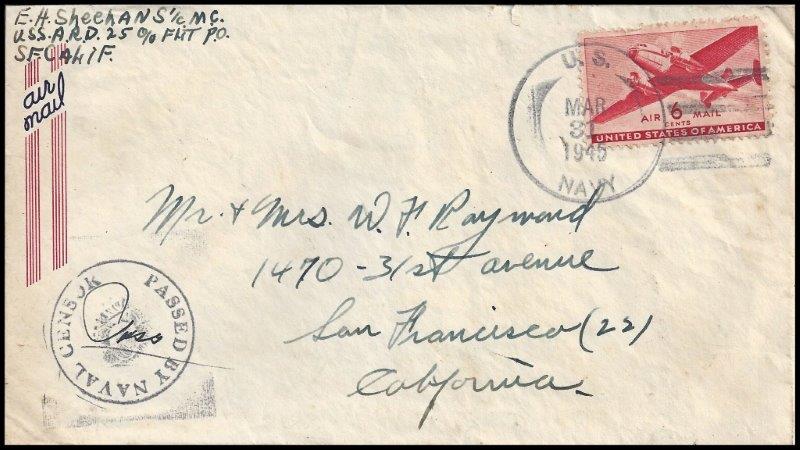 E.H. Sheehan S 1/c M.C.
U.S.S. A.R.D. 25 c/o FLT P.O.
S.F. CALIF.
air
mail
U. S.
MAR
1945
NAVY
AIR 6 MAIL
CENTS
UNITED STATES OF AMERICA
Mr. & Mrs. W. F. Raymond
1470 - 31st avenue
San Francisco (22)
California.
PASSED BY NAVAL CENSOR